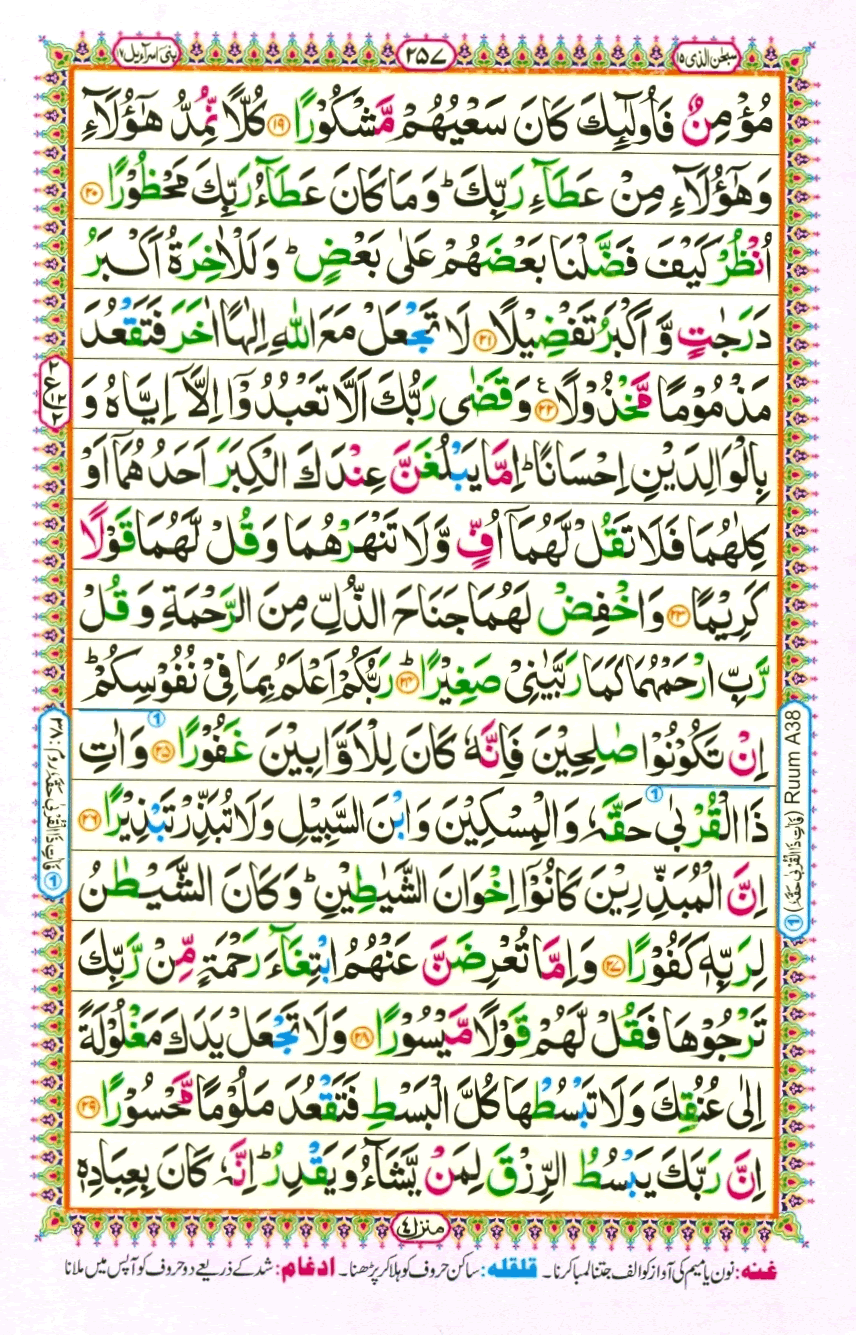 سبحٰن الذی ۱۵
۲۵۷
بنیٓ اسرآءیل ۱۷
مُؤْمِنٌ فَاُولٰٓئِكَ كَانَ سَعْيُهُمْ مَّشْكُوْرًا ۝۱۹ كُلًّا نُّمِدُّ هٰٓؤُلَآءِ
وَهٰٓؤُلَآءِ مِنْ عَطَآءِ رَبِّكَ ؕ وَمَا كَانَ عَطَآءُ رَبِّكَ مَحْظُوْرًا ۝۲۰
اُنْظُرْ كَيْفَ فَضَّلْنَا بَعْضَهُمْ عَلٰى بَعْضٍ ؕ وَلَلْاٰخِرَةُ اَكْبَرُ
دَرَجٰتٍ وَّاَكْبَرُ تَفْضِيْلًا ۝۲۱ لَا تَجْعَلْ مَعَ اللّٰهِ اِلٰهًا اٰخَرَ فَتَقْعُدَ
مَذْمُوْمًا مَّخْذُوْلًا ۝۲۲ۧ وَقَضٰى رَبُّكَ اَلَّا تَعْبُدُوْٓا اِلَّآ اِيَّاهُ وَ
بِالْوَالِدَيْنِ اِحْسَانًا ؕ اِمَّا يَبْلُغَنَّ عِنْدَكَ الْكِبَرَ اَحَدُهُمَآ اَوْ
كِلٰهُمَا فَلَا تَقُلْ لَّهُمَآ اُفٍّ وَّلَا تَنْهَرْهُمَا وَقُلْ لَّهُمَا قَوْلًا
كَرِيْمًا ۝۲۳ وَاخْفِضْ لَهُمَا جَنَاحَ الذُّلِّ مِنَ الرَّحْمَةِ وَقُلْ
رَّبِّ ارْحَمْهُمَا كَمَا رَبَّيٰنِيْ صَغِيْرًا ۝۲۴ؕ رَبُّكُمْ اَعْلَمُ بِمَا فِيْ نُفُوْسِكُمْ ؕ
اِنْ تَكُوْنُوْا صٰلِحِيْنَ فَاِنَّهٗ كَانَ لِلْاَوَّابِيْنَ غَفُوْرًا ۝۲۵ وَاٰتِ
ذَا الْقُرْبٰى حَقَّهٗ وَالْمِسْكِيْنَ وَابْنَ السَّبِيْلِ وَلَا تُبَذِّرْ تَبْذِيْرًا ۝۲۶
اِنَّ الْمُبَذِّرِيْنَ كَانُوْٓا اِخْوَانَ الشَّيٰطِيْنِ ؕ وَكَانَ الشَّيْطٰنُ
لِرَبِّهٖ كَفُوْرًا ۝۲۷ وَاِمَّا تُعْرِضَنَّ عَنْهُمُ ابْتِغَآءَ رَحْمَةٍ مِّنْ رَّبِّكَ
تَرْجُوْهَا فَقُلْ لَّهُمْ قَوْلًا مَّيْسُوْرًا ۝۲۸ وَلَا تَجْعَلْ يَدَكَ مَغْلُوْلَةً
اِلٰى عُنُقِكَ وَلَا تَبْسُطْهَا كُلَّ الْبَسْطِ فَتَقْعُدَ مَلُوْمًا مَّحْسُوْرًا ۝۲۹
اِنَّ رَبَّكَ يَبْسُطُ الرِّزْقَ لِمَنْ يَّشَآءُ وَيَقْدِرُ ؕ اِنَّهٗ كَانَ بِعِبَادِهٖ
① (فَاٰتِ ذَاالْقُرْبٰى حَقَّهٗ) Ruum A38
① فَاٰتِ ذَاالْقُرْبٰى حَقَّهٗ روم : ۳۸
منزل ۴
غنہ: نون یا میم کی آواز کو الف جتنا لمبا کرنا۔ قلقلہ: ساکن حروف کو ہلا کر پڑھنا۔ ادغام: شد کے ذریعے دو حروف کو آپس میں ملانا